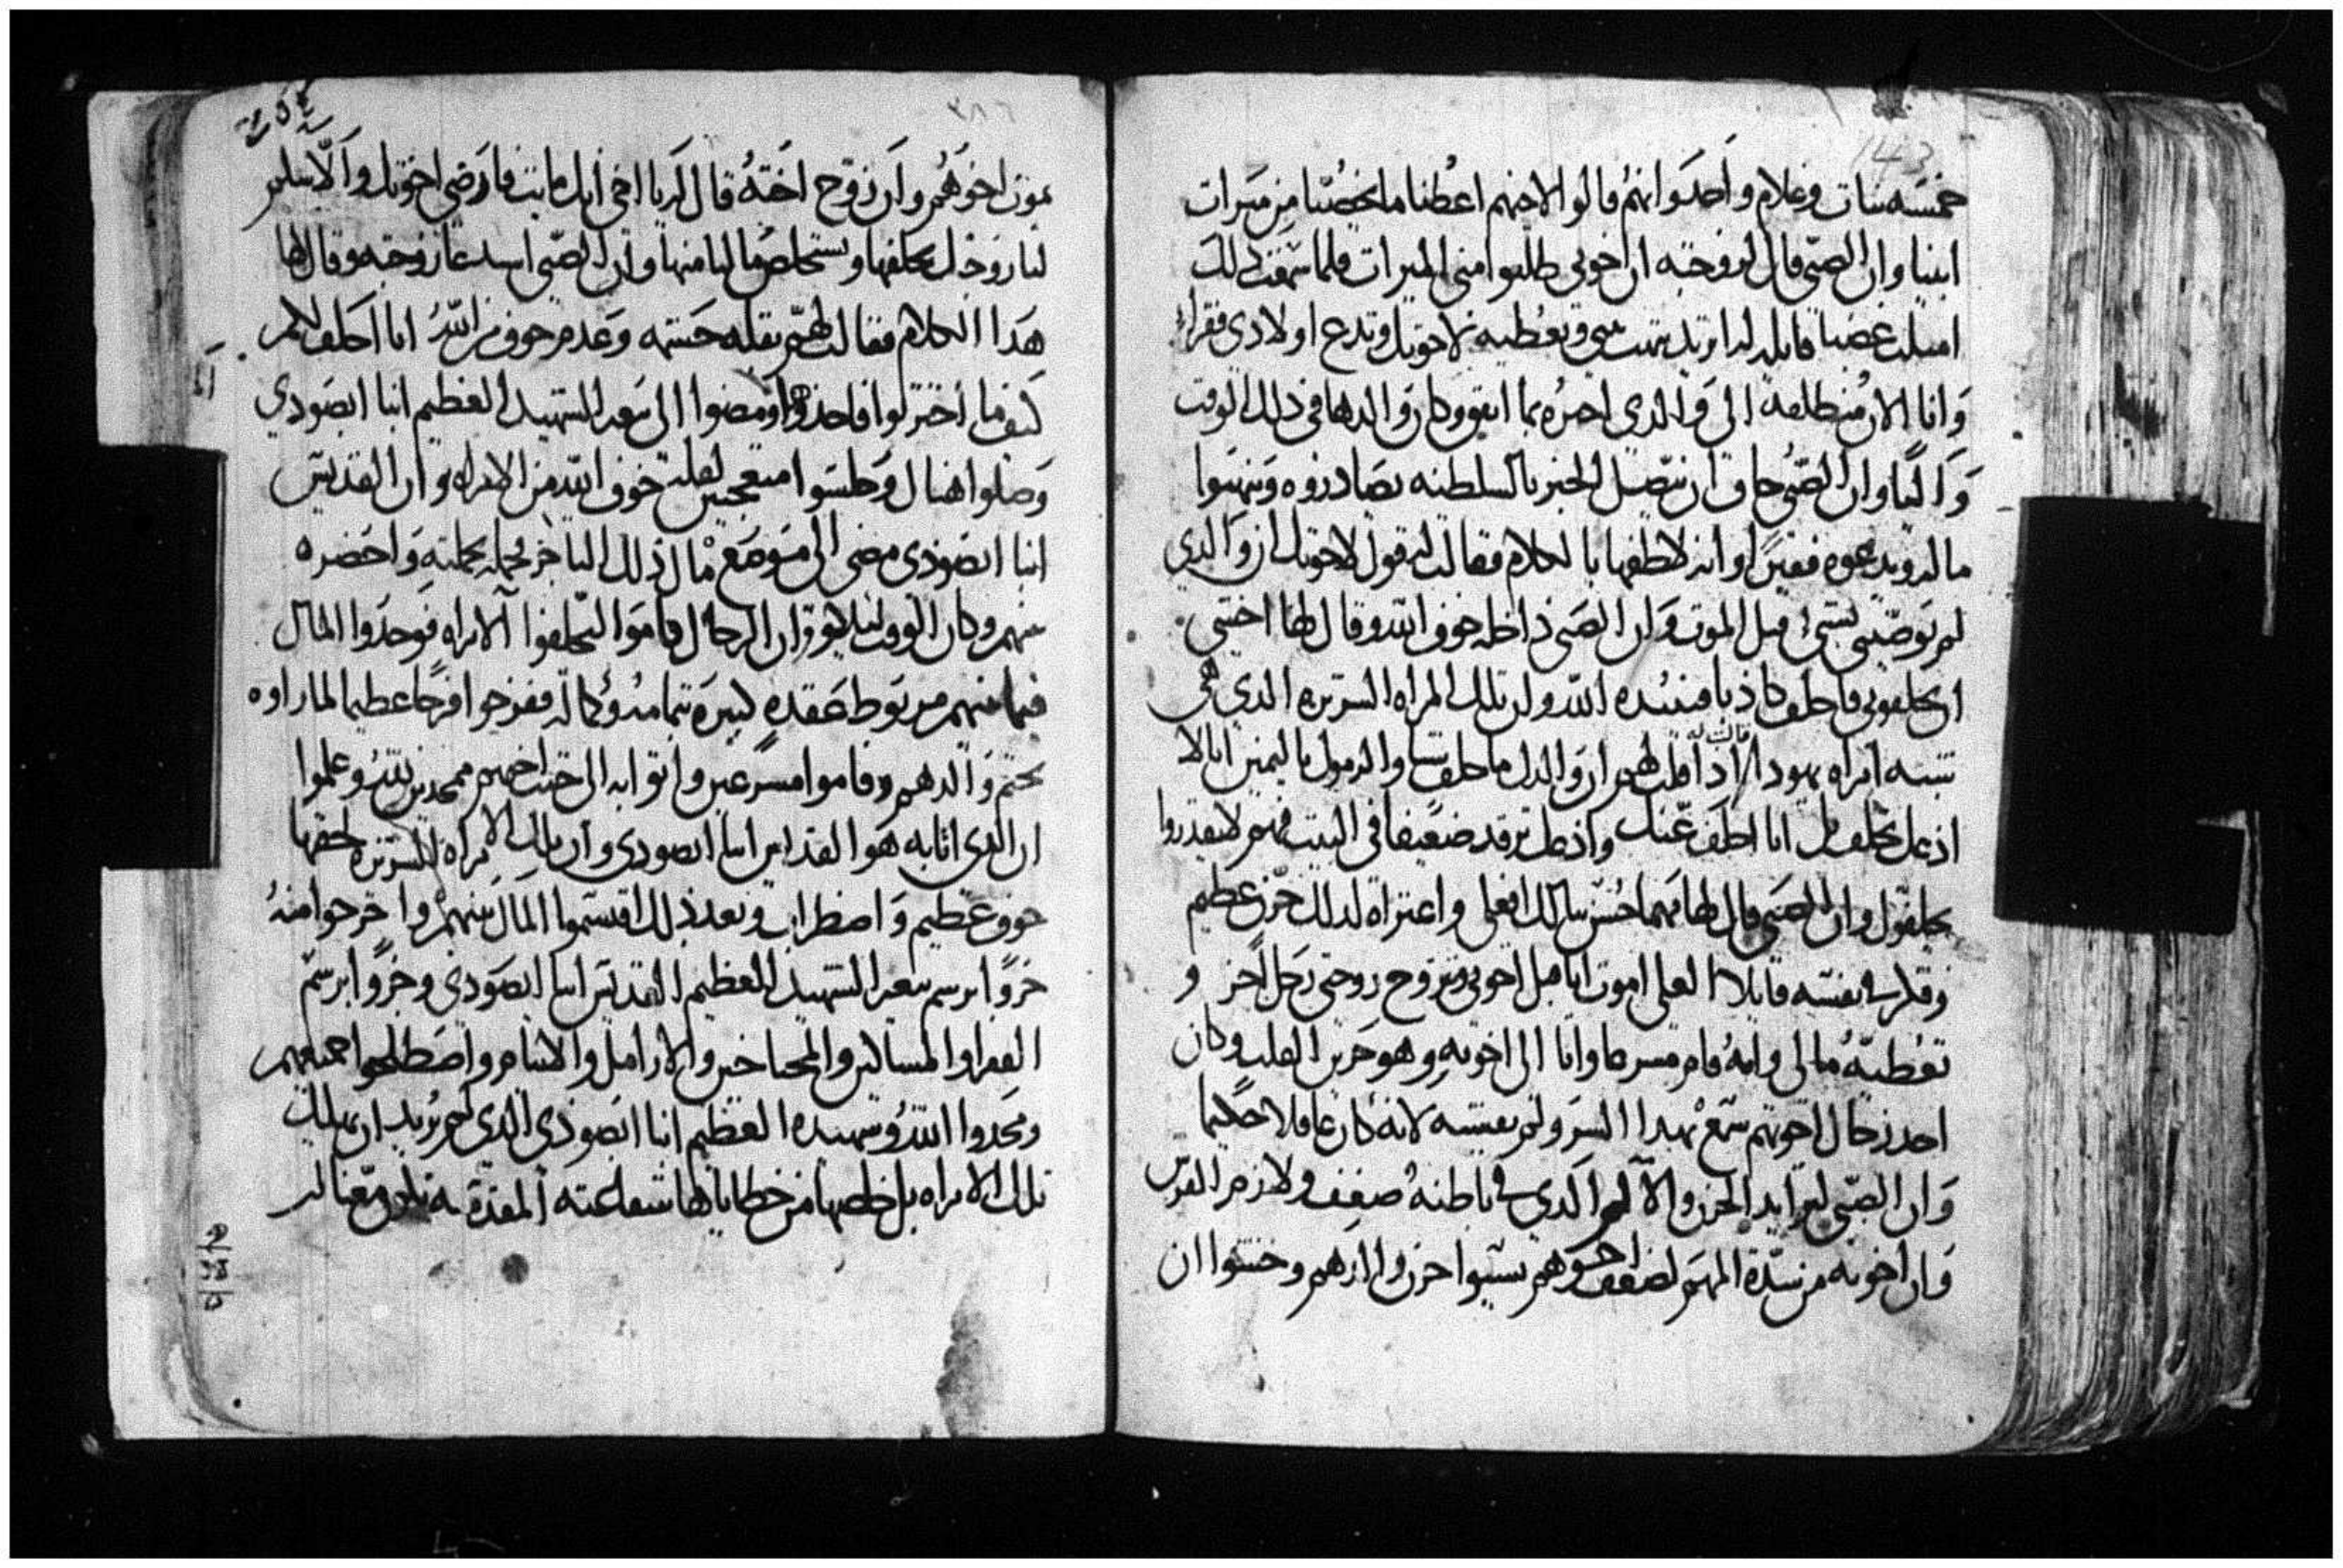 143
خمسه بنات وغلام واحد وانهم قالوا لاخيهم اعطنا ما يخصنا من ميرات
ابينا وان الصبى قال لزوجته ان اخوتى طلبوا منى الميرات فلما سمعت ذلك
امتلت غضبا قايله لم تريد بيتى وتعطيه لاخوتك وتدع اولادى فقراء
وانا الان منطلقه الى والدى اخبره بما اتفق وكان والدها فى ذلك الوقت
واليا وان الصبى خاف ان يتصل الخبر بالسلطنه يصادروه وينهبوا
ماله ويدعوه فقيرا وانه لاطفها بالكلام فقالت له قول لاخوتك ان والدي
لم يوصينى بشى قبل الموت وان الصبى داخله خوف الله وقال لها اخشى
ان يحلفونى فاحلف كاذبا فيبيده الله وان تلك المراه الشريره الذي هى
شبه امراه يهودا قالت له اذا قلت لهم ان والدك ما خلف شيا والزموك باليمين انا لا
ادعك تحلف بل انا احلف عنك وادعك ترقد ضعيفا فى البيت فهم لا يقدروا
يحلفوك وان الصبى قال لها مهما حسن ببالك افعلى واعتراه لذلك حزن عظيم
وفكر فى نفسه قايلا لعلى اموت انا قبل اخوتى وتتزوج زوجتى رجل اخر و
تعطيه مالى وانه قام مسرعا واتا الى اخوته وهو حزين القلب وكان
احد رجال اخوتهم سمع بهذا السر ولم يفشيه لانه كان عاقلا حكيما
وان الصبى لتزايد الحزن والالم الذي فى باطنه ضعف ولازم الفرش
وان اخوته من شدة المهم لضعف اخوهم نسيوا حزن والدهم وخشوا ان
يموت اخوهم وان زوج اخته قال له يا اخى ابك مابت فارضى اخوتك والا سلم
لنا زوجتك نحلفها ونستخلص مالنا منها وان الصبى استدعا زوجته وقال لها
هذا الكلام فقالت لهم بقلة حشمه وعدم خوف من الله انا احلف لكم
كيف ما اخترتوا فاخذوها ومضوا الى بيعة الشهيد العظيم انبا ابصودي
وصلوا هناك وجلسوا متعجبين لقلة خوف الله من الامراه وان القديس
انبا ابصودى مضى الى موضع مال ذلك التاجر فحمله بجملته واحضره
بينهم وكان الوقت ليلا وان الرجال قاموا ليحلفوا الامراه فوجدوا المال
فيما بينهم مربوط صفده كبيره بتمامه وكماله ففرحوا فرحا عظيما لما راوه
بختم والدهم وقاموا مسرعين واتوا به الى بيت اخيهم ممجدين لله وعلموا
ان الذى اتا به هو القديس انبا ابصودى وان تلك الامراه الشريره لحقها
خوف عظيم واضطراب وبعد ذلك اقتسموا المال بينهم واخرجوا منه
جزوا برسم بيعة الشهيد العظيم القديس انبا ابصودى وجزوا برسم
الفقرا والمساكين والمحتاجين والارامل والايتام واصطلحوا جميعهم
ومجدوا الله وشهيده العظيم انبا ابصودى الذى لم يريد ان يهلك
تلك الامراه بل خلصها من خطاياها شفاعته المقدسة تكون معنا